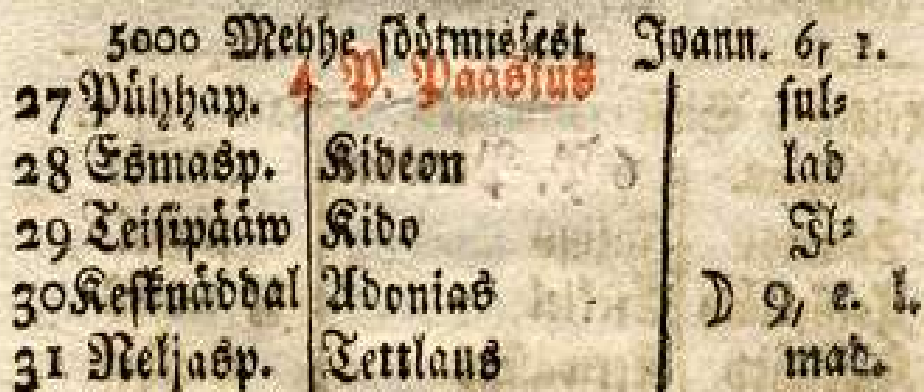 5000 Mehhe söötmissest. Joann. 6, 1.
27 Pühhap. 4 P. Paastus sul⸗
28 Esmasp. Kideon lad
29 Teisipääw Kido Jl⸗
30 Kesknäddal Adonias ☽ 9, e. l.
31 Neljasp. Tettlaus mad.